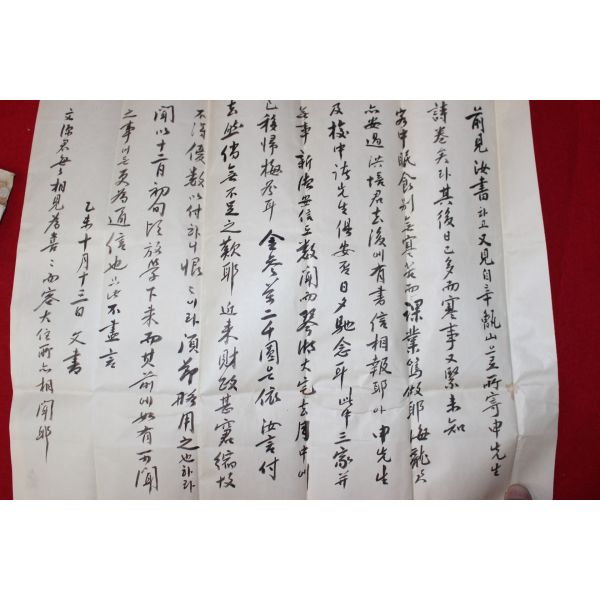 前見 汝書하고 又見自 甑山 所寄申先生
詩卷矣라 其後日已多而寒事又緊未知
客中眠食別無寒苦而課業篤做耶 海龍도
亦安過 洪 君去後에 有書信相報耶아 申先生
及校中諸先生俱安否 日夕馳念耳 此中三家幷
無事 新塘安信도 數聞而琴湖大宅去月中에
已移歸梅 耳 金參萬二千圓은 依 汝言付
去 倘無不足之歎耶 近來財政甚窘 故
不得優數以付하니 恨〻이라 須節 用之也하라
聞以十二月初旬頃放學下來而其前에 如有可聞
之事 更爲通信也 此不盡言
乙未十月十三日 父書
文源君每〻相見爲喜〻而容大住所亦相聞耶